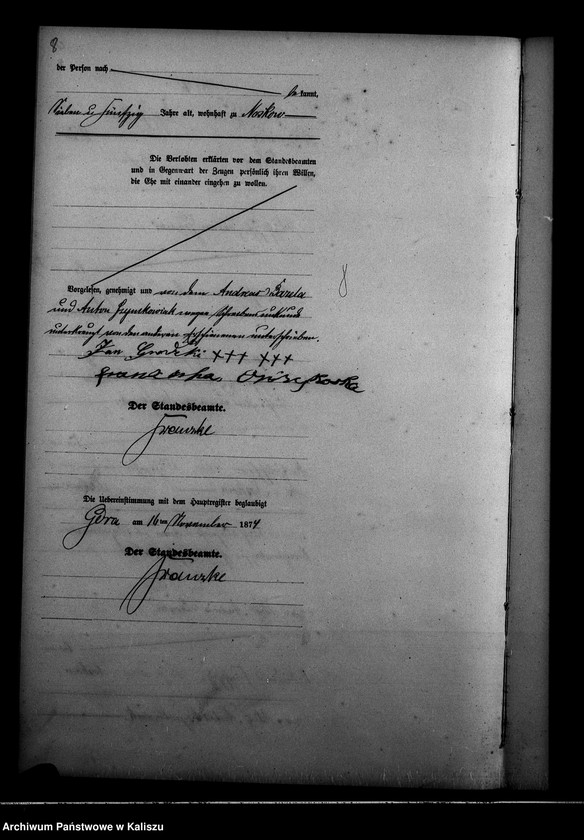 8
der Person nach
kannt,
Sieben u. fünfzig Jahre alt, wohnhaft zu Noskow
Die Verlobten erklärten vor dem Standesbeamten
und in Gegenwart der Zeugen persönlich ihren Willen,
die Ehe mit einander eingehen zu wollen.
Vorgelesen, genehmigt und von dem Andreas
und Anton Szymkowiak wegen Schreibens unkunde
unterkreuzt von den anderen Erschienenen unterschrieben.
Jan Grodzki +++ +++
Franziska
Der Standesbeamte.
Franzke
Die Uebereinstimmung mit dem Hauptregister beglaubigt
Góra am 16ten November 1874
Der Standesbeamte.
Franzke
Archiwum Państwowe w Kaliszu